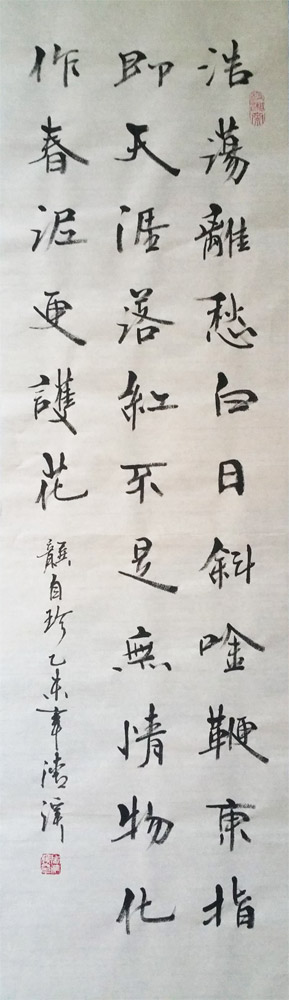 浩蕩離愁白日斜唫鞭東指
即天涯落紅不是無情物化
作春泥更護花
龔自珍乙未年清漢